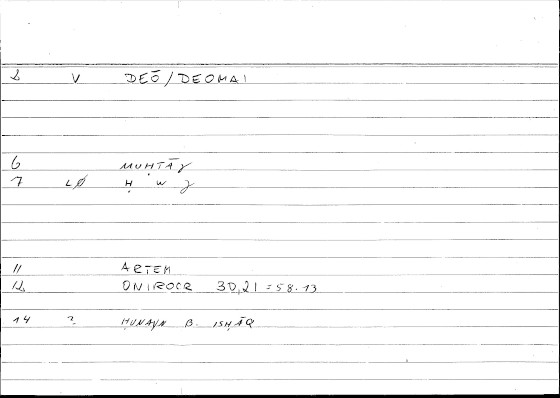 2 V DEŌ/DEOMAI
6 MUḤTĀǧ
7 LØ Ḥ W ǧ
11 ARTEM
12 ONIROCR 30,21 = 58.13
14 ? ḤUNAYN B. ISḤĀQ